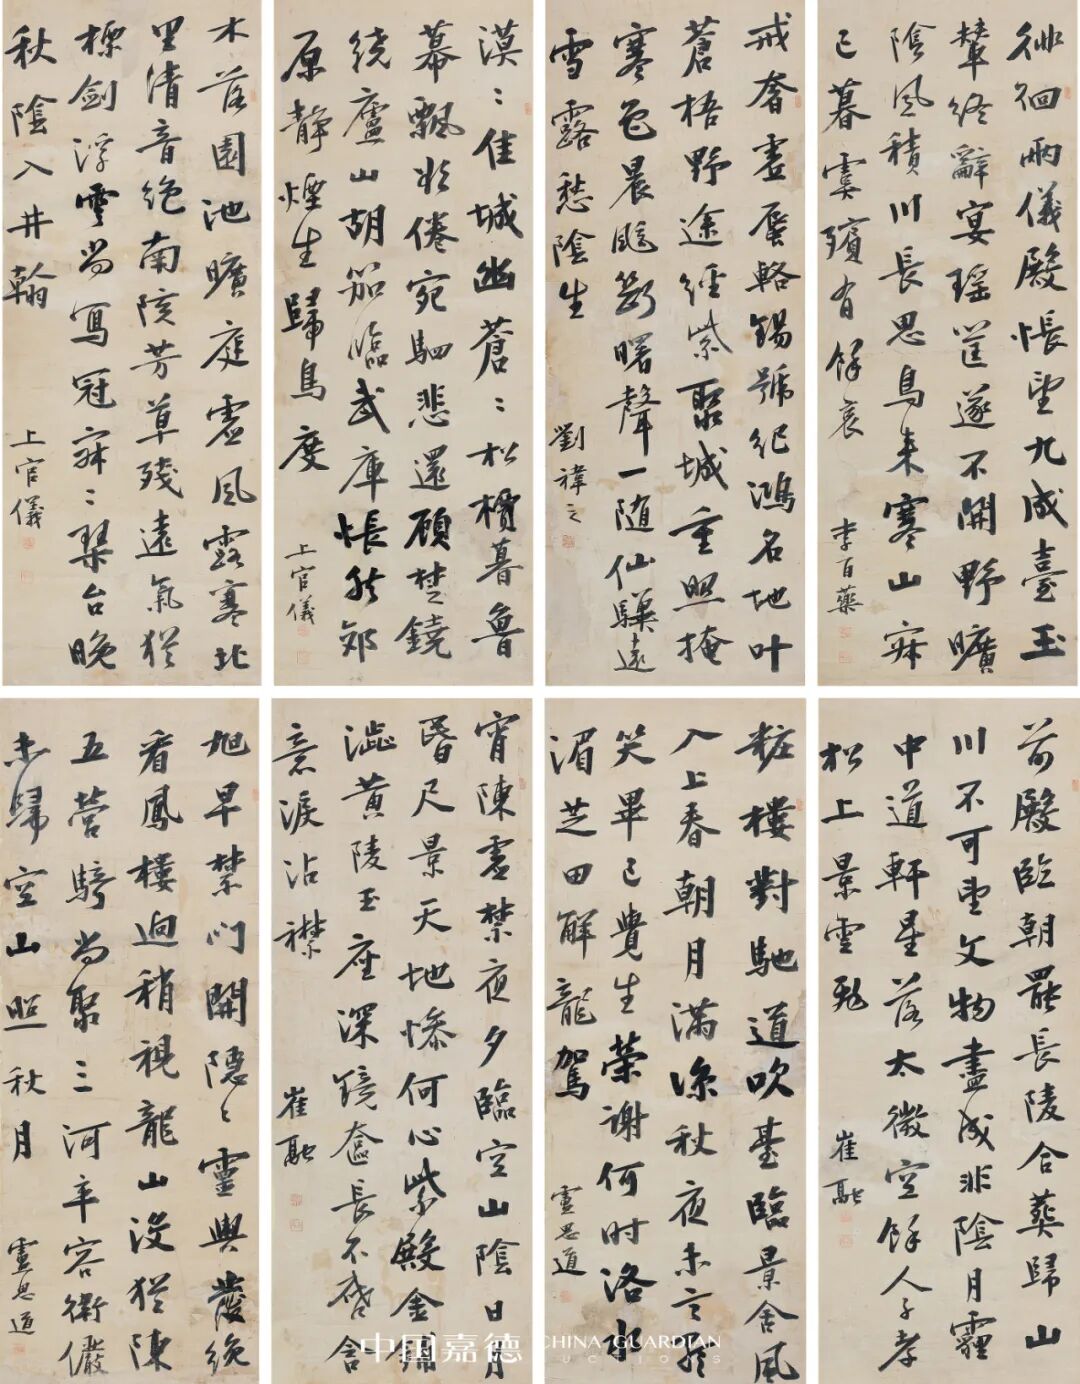 徘徊兩儀殿悵望九成臺玉
輦終辭宴瑤筐遂不開野曠
陰風積川長思鳥来寒山寂
已暮虞殯有餘哀
李百藥
戒奢虛蜃輅錫號紀鴻名地叶
蒼梧野途經紫聚城重照掩
寒色晨飈斷曙聲一随仙驥遠
雪露愁陰生
劉禕之
漠:佳城幽蒼:松檟暮魯
幕飄欲倦宛駟悲還顧楚鐃
繞廬山胡笳臨武庫悵然郊
原靜煙生歸鳥度
上官儀
木落園池曠庭虛風露寒北
里清音絕南陔芳草殘遠氣猶
標劍浮雲尚寫冠寂:琴台晚
秋陰入井翰
上官儀
前殿臨朝罷長陵合葬歸山
川不可望文物盡成非陰月霾
中道軒星落太微空餘人子孝
松上景雲飛
崔融
粧樓對馳道吹臺臨景舍風
入上春朝月滿涼秋夜未言歌
笑畢已覺生榮謝何時洛水
湄芝田解龍駕
盧思道
宵陳虛禁夜夕臨空山陰日月
昏尺景天地慘何心紫殿金鋪
澁黃陵玉座深鏡奩長不啓含
意淚沾襟
崔融
旭早禁門開隱:靈輿發纔
看鳳樓迥稍視龍山没猶陳
五營騎尚聚三河卒容衛儼
未歸空山照秋月
盧思道
中国嘉德 CHINA GUARDIAN
AUCTIONS